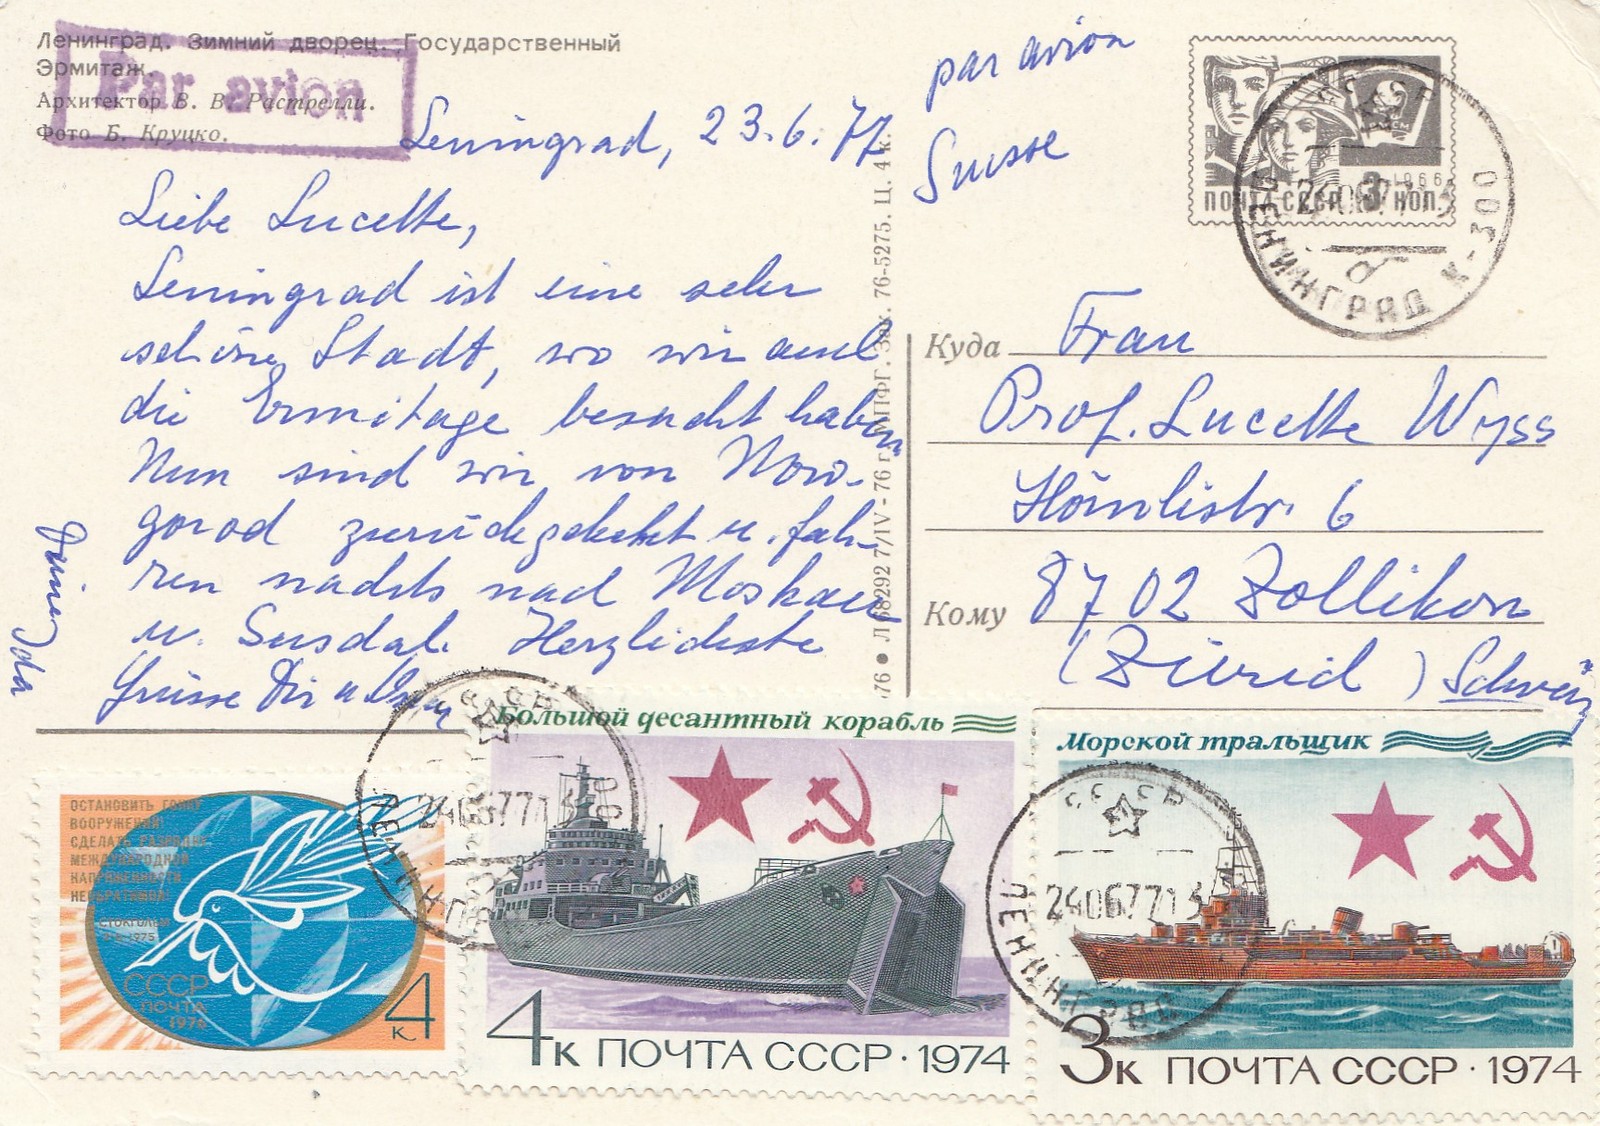 Ленинград. Зимний дворец. Государственный
Эрмитаж.
Архитектор В. В. Растрелли.
Фото Б. Круцко.
Par avion
Leningrad, 23.6.77
Liebe Lucette,
Leningrad ist eine sehr
schöne Stadt, wo wir auch
die Ermitage besucht haben
Nun sind wir von Now-
gorod zurückgekehrt u. fah-
ren nachts nach Moskau
u. Susdal. Herzlichste
Grüsse Dir u.
Deine Ida
76 • Л 68292 7/IV - 76 г. МПФГ. Зак. 76-5275. Ц. 4 к.
par avion
Suisse
ПОЧТА СССР 3 КОП.
1966
СССР
24067713
ЛЕНИНГРАД К-300
Куда
Frau
Prof. Lucette Wyss
Hörnlistr. 6
Кому
8702 Zollikon
(Zürich) Schweiz
ОСТАНОВИТЬ ГОНКУ
ВООРУЖЕНИЙ
СДЕЛАТЬ РАЗРЯДКУ
МЕЖДУНАРОДНОЙ
НАПРЯЖЕННОСТИ
НЕОБРАТИМОЙ
СТОКГОЛЬМ
1975
СССР
ПОЧТА
1976
4 к
СССР
24067713
ЛЕНИНГРАД
Большой десантный корабль
4к ПОЧТА СССР · 1974
Морской тральщик
СССР
24067713
ЛЕНИНГРАД
3к ПОЧТА СССР · 1974